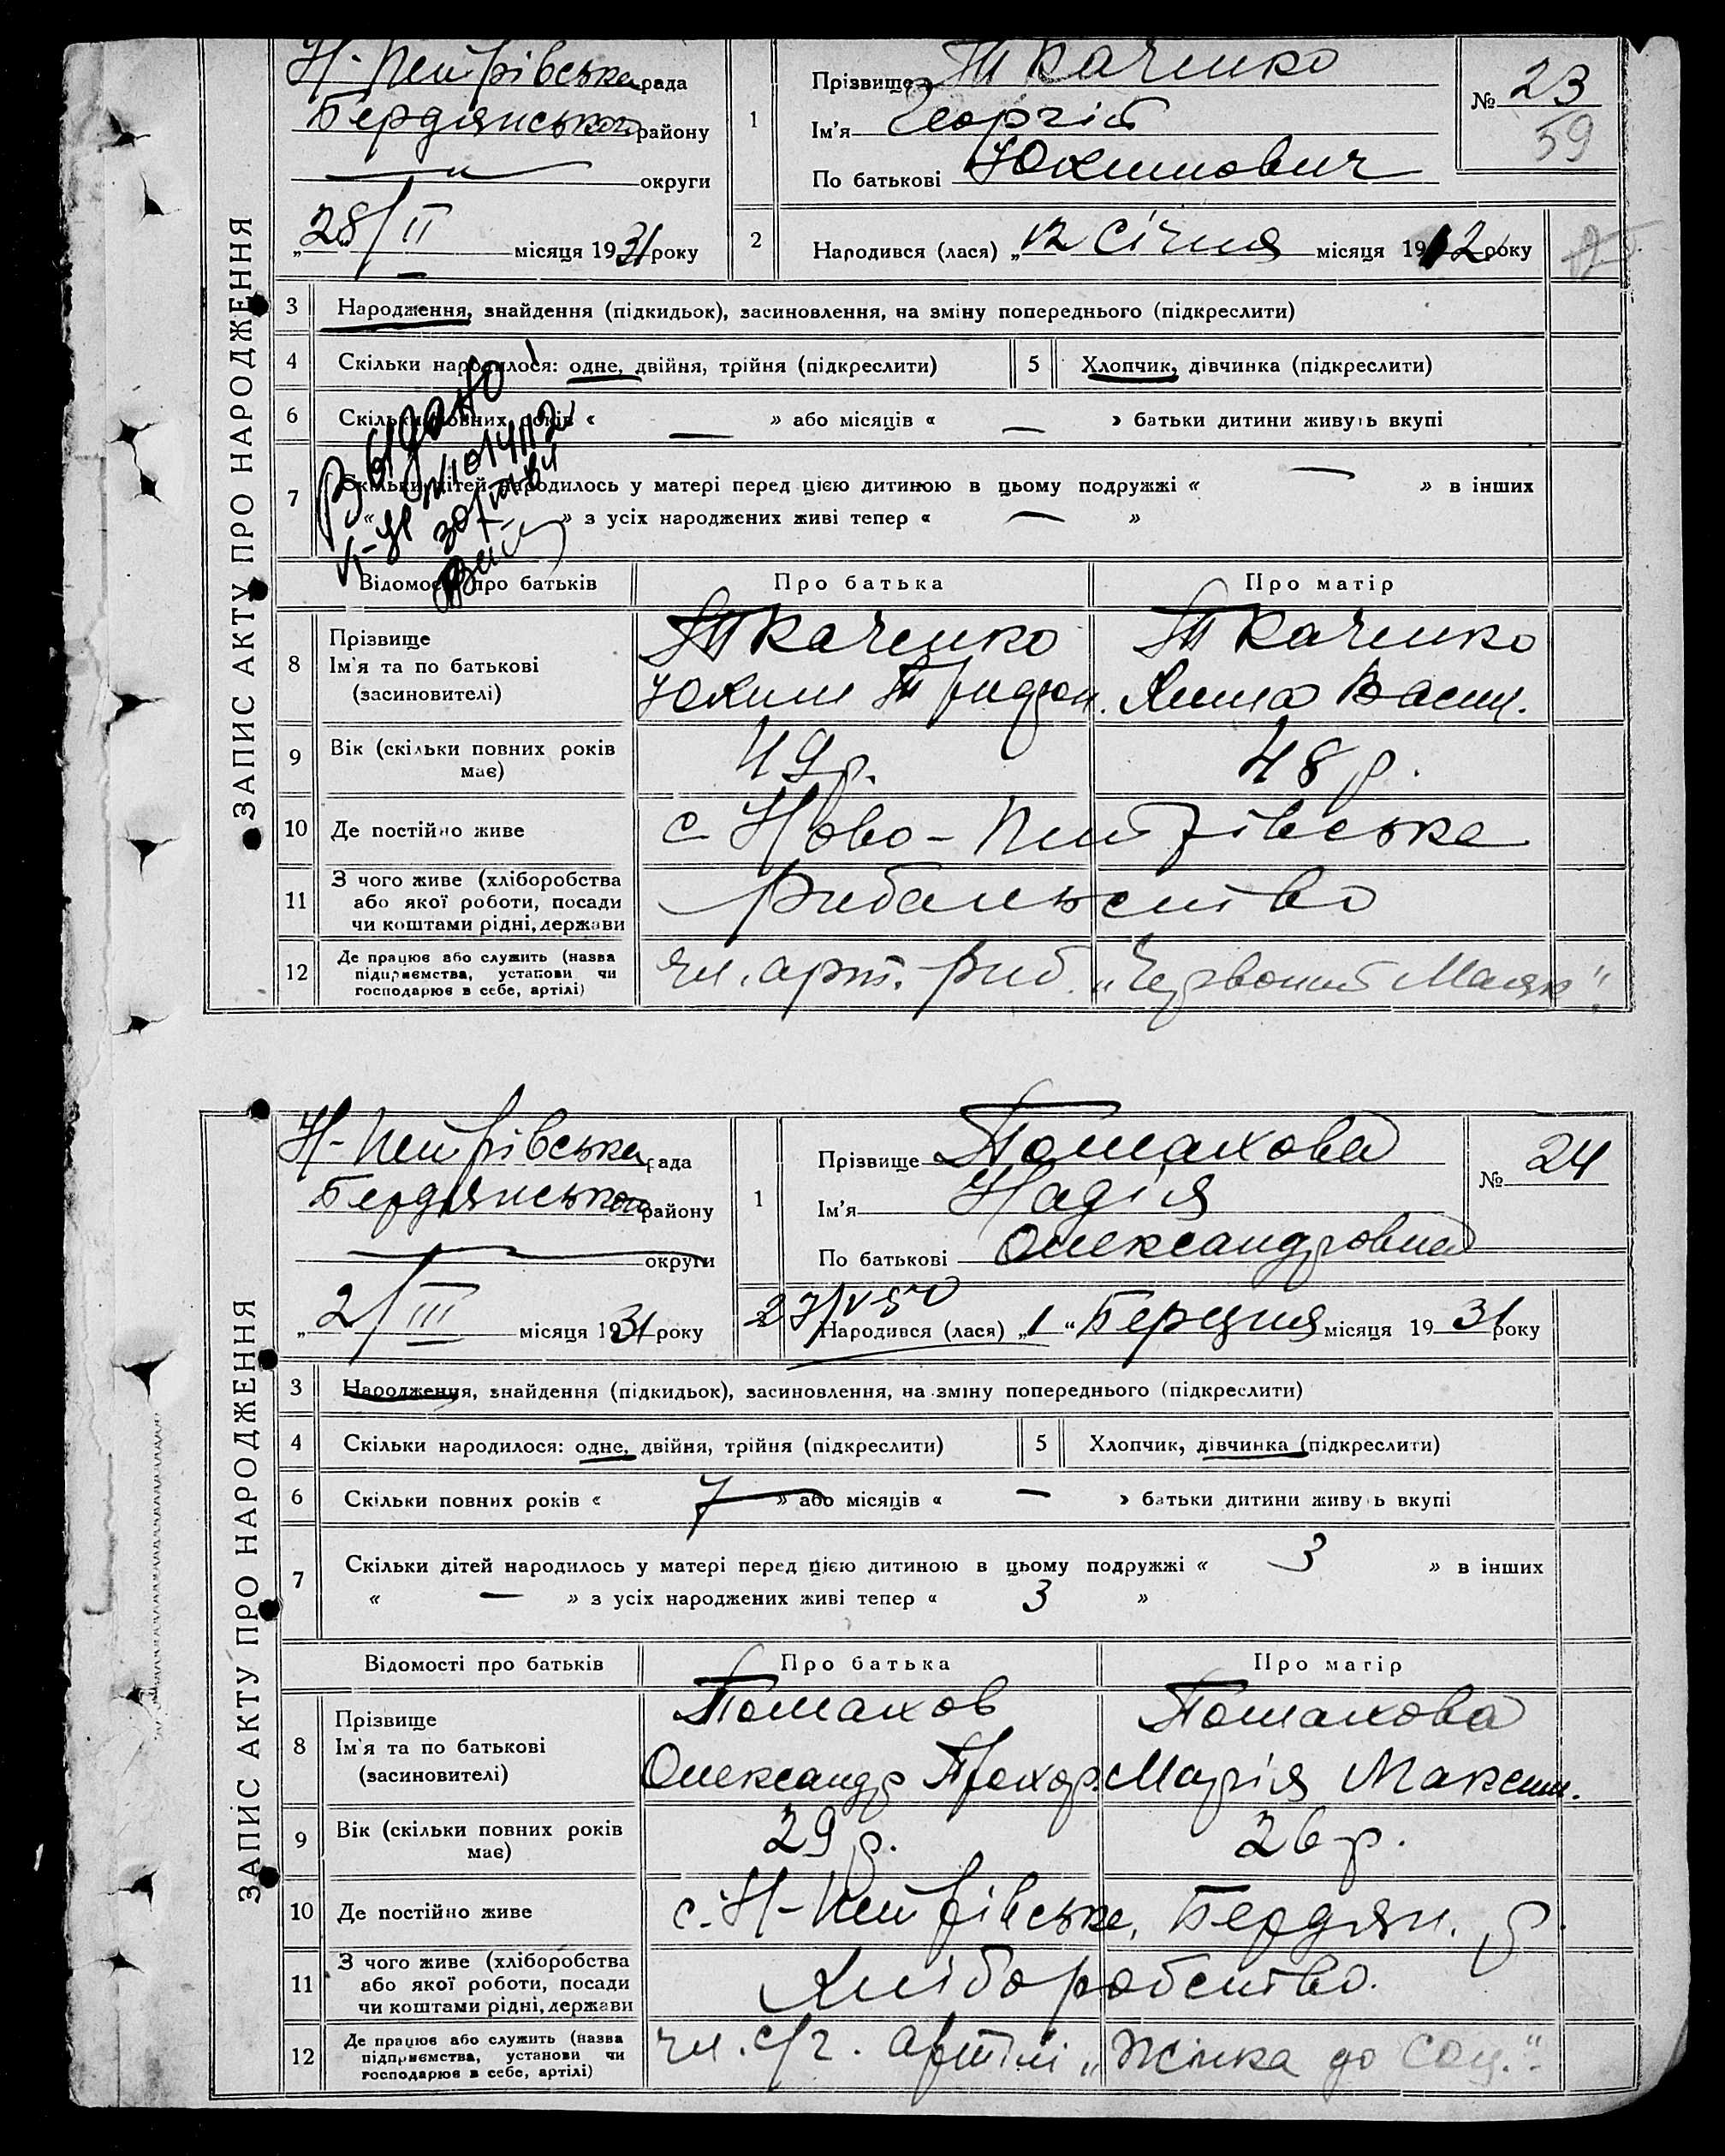 ЗАПИС АКТУ ПРО НАРОДЖЕННЯ
Н-Петрівська рада
Бердянського району
—"— округи
„28/II місяця 1931 року
1
Прізвище Ткаченко
Ім'я Георгій
По батькові Юхимович
№ 23
59
2 Народився (лася) „12 Січня місяця 1912 року
3 Народження, знайдення (підкидьок), засиновлення, на зміну попереднього (підкреслити)
4 Скільки народилося: одне, двійня, трійня (підкреслити) 5 Хлопчик, дівчинка (підкреслити)
6 Скільки повних років « — » або місяців « — » батьки дитини живуть вкупі
7 Скільки дітей народилось у матері перед цією дитиною в цьому подружжі « — » в інших
« » з усіх народжених живі тепер « — »
Выдано
Відомості про батьків Про батька Про матір
8 Прізвище
Ім'я та по батькові
(засновителі)
Ткаченко Ткаченко
Юхим Васил.
9 Вік (скільки повних років має) 49 р. 48 р.
10 Де постійно живе с Ново-Петрівське
11 З чого живе (хліборобства
або якої роботи, посади
чи коштами рідні, держави
рибальство
12 Де працює або служить (назва
підприємства, установи чи
господарює в себе, артілі)
чл. арт. риб. „Червоний Маяк".
ЗАПИС АКТУ ПРО НАРОДЖЕННЯ
Н-Петрівська рада
Бердянського району
— округи
„2/III місяця 1931 року
1
Прізвище Томахова
Ім'я Надія
По батькові Олександровна
№ 24
27/V 50
2 Народився (лася) „1" Березня місяця 1931 року
3 Народження, знайдення (підкидьок), засиновлення, на зміну попереднього (підкреслити)
4 Скільки народилося: одне, двійня, трійня (підкреслити) 5 Хлопчик, дівчинка (підкреслити)
6 Скільки повних років « 7 » або місяців « — » батьки дитини живуть вкупі
7 Скільки дітей народилось у матері перед цією дитиною в цьому подружжі « 3 » в інших
« — » з усіх народжених живі тепер « 3 »
Відомості про батьків Про батька Про матір
8 Прізвище
Ім'я та по батькові
(засиновителі)
Томахов Томахова
Олександр Прохор. Марія Максим.
9 Вік (скільки повних років має) 29 р. 26 р.
10 Де постійно живе с. Н-Петрівське, Бердян. р.
11 З чого живе (хліборобства
або якої роботи, посади
чи коштами рідні, держави
Хліборобство.
12 Де працює або служить (назва
підприємства, установи чи
господарює в себе, артілі)
чл. с/г. артілі „ до Соц."